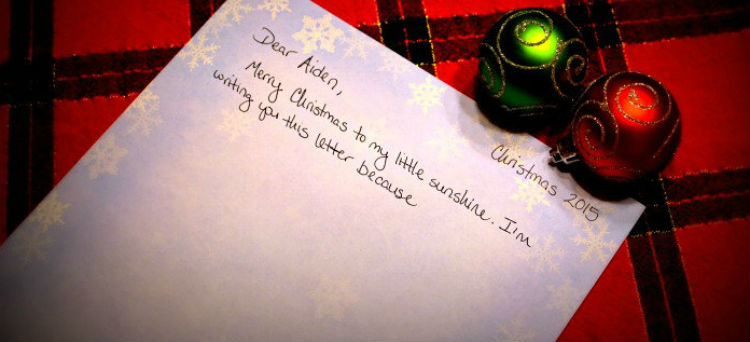 Christmas 2015
Dear Aiden,
Merry Christmas to my little sunshine. I'm
writing you this letter because